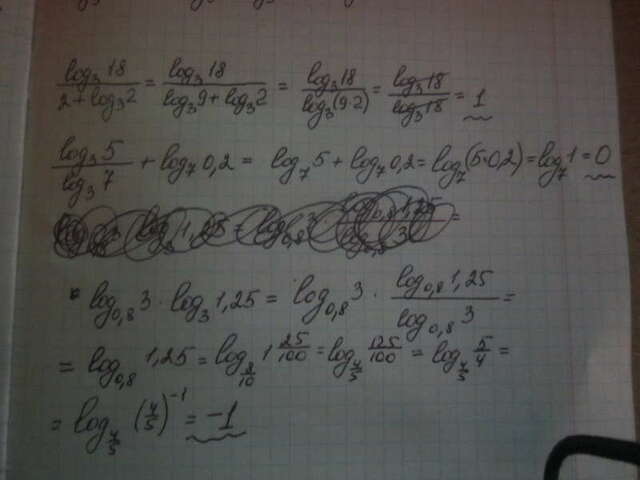 log₃18/(2+log₃2) = log₃18/(log₃9+log₃2) = log₃18/log₃(9·2) = log₃18/log₃18 = 1
log₃5/log₃7 + log₇0,2 = log₇5 + log₇0,2 = log₇(5·0,2) = log₇1 = 0
log₀,₈3 · log₃1,25 = log₀,₈3 · log₀,₈1,25/log₀,₈3 =
= log₀,₈1,25 = log_(8/10) 1 25/100 = log_(4/5) 125/100 = log_(4/5) 5/4 =
= log_(4/5) (4/5)⁻¹ = -1